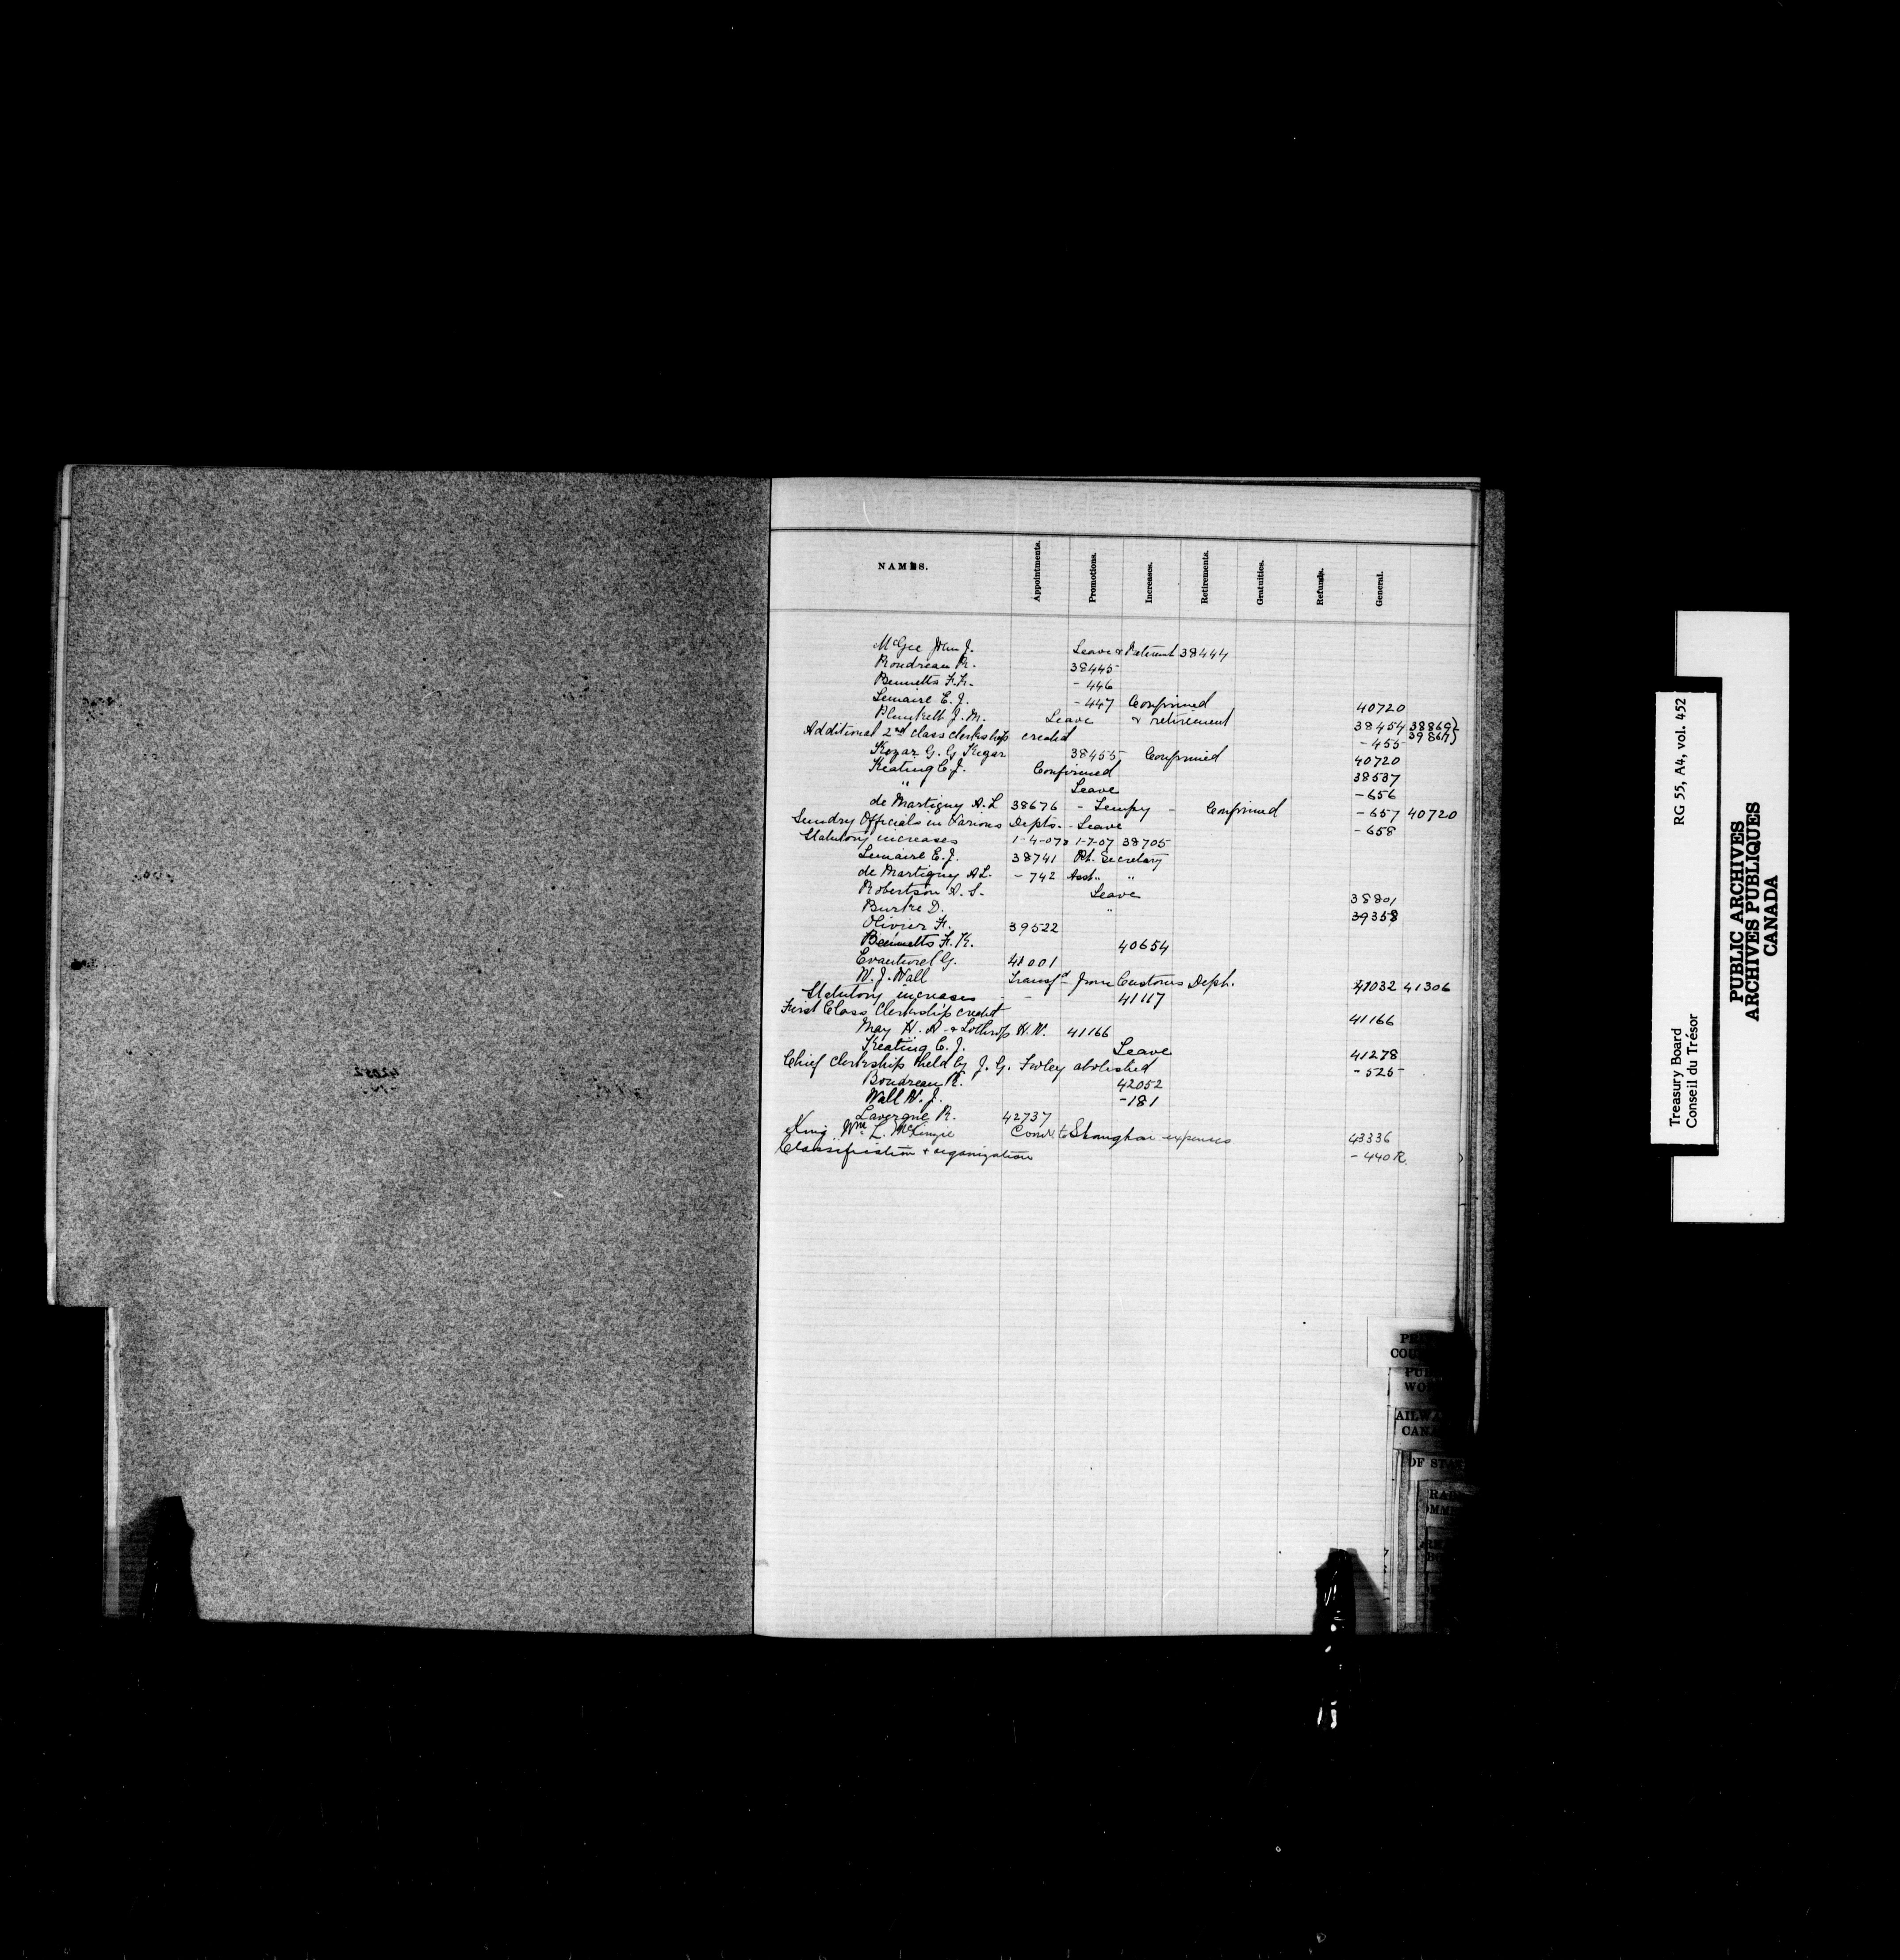 NAMES. Appointments. Promotions. Increases. Retirements. Gratuities. Refunds. General.
McGee Jno J. Leave & Retirmt 38444
Boudreau R. 38445
Bennetts F. K. - 446
Lemaire E. J. - 447 Confirmed 40720
Plunkett J. M. Leave & retirement 38454 38869)
Additional 2nd class clerkship created - 455 39867)
Kezar G. G. Kezar 38455 Confirmed 40720
Keating C. J. Confirmed 38537
" Leave - 656
de Martigny A. L 38676 - Tempy - Confirmed - 657 40720
Sundry Officials in Various Depts. - Leave - 658
Statutory increases 1-4-07 & 1-7-07 38705
Lemaire E. J. 38741 Pt. Secretary
de Martigny A L. - 742 Asst. " "
Robertson A. S. Leave 38801
Burke D. " 39358
Olivier F. 39522
Bennetts F. K. 40654
Evanturel G. 41001
W. J. Wall Transfd from Customs Dept. 41032 41306
Statutory increases - 41117
First Class Clerkship creatd 41166
May H. A. & Lothrop H. W. 41166
Keating C. J. Leave 41278
Chief Clerkship held by J. G. Foley abolished - 525 -
Boudreau R. 42052
Wall W. J. - 181
Lavergne R. 42737
King Wm L. McKenzie Comr to Shanghai expenses 43336
Classification & organization - 440 R.
PRI
COU
PUB
WO
AILWA
CANA
OF STA
RAD
OMME
Treasury Board RG 55, A4, vol. 452
Conseil du Trésor
PUBLIC ARCHIVES
ARCHIVES PUBLIQUES
CANADA